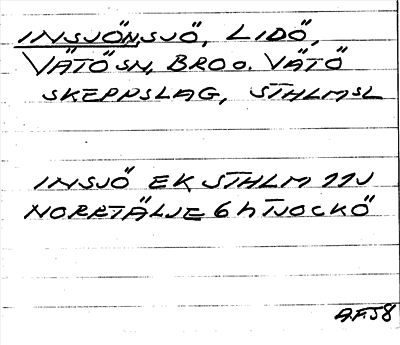 INSJÖN, SJÖ, LIDÖ,
VÄTÖ SN, BRO o. VÄTÖ
SKEPPSLAG, STHLMSL
INSJÖ EK STHLM 11J
NORRTÄLJE 6h TJOCKÖ
A.F.58